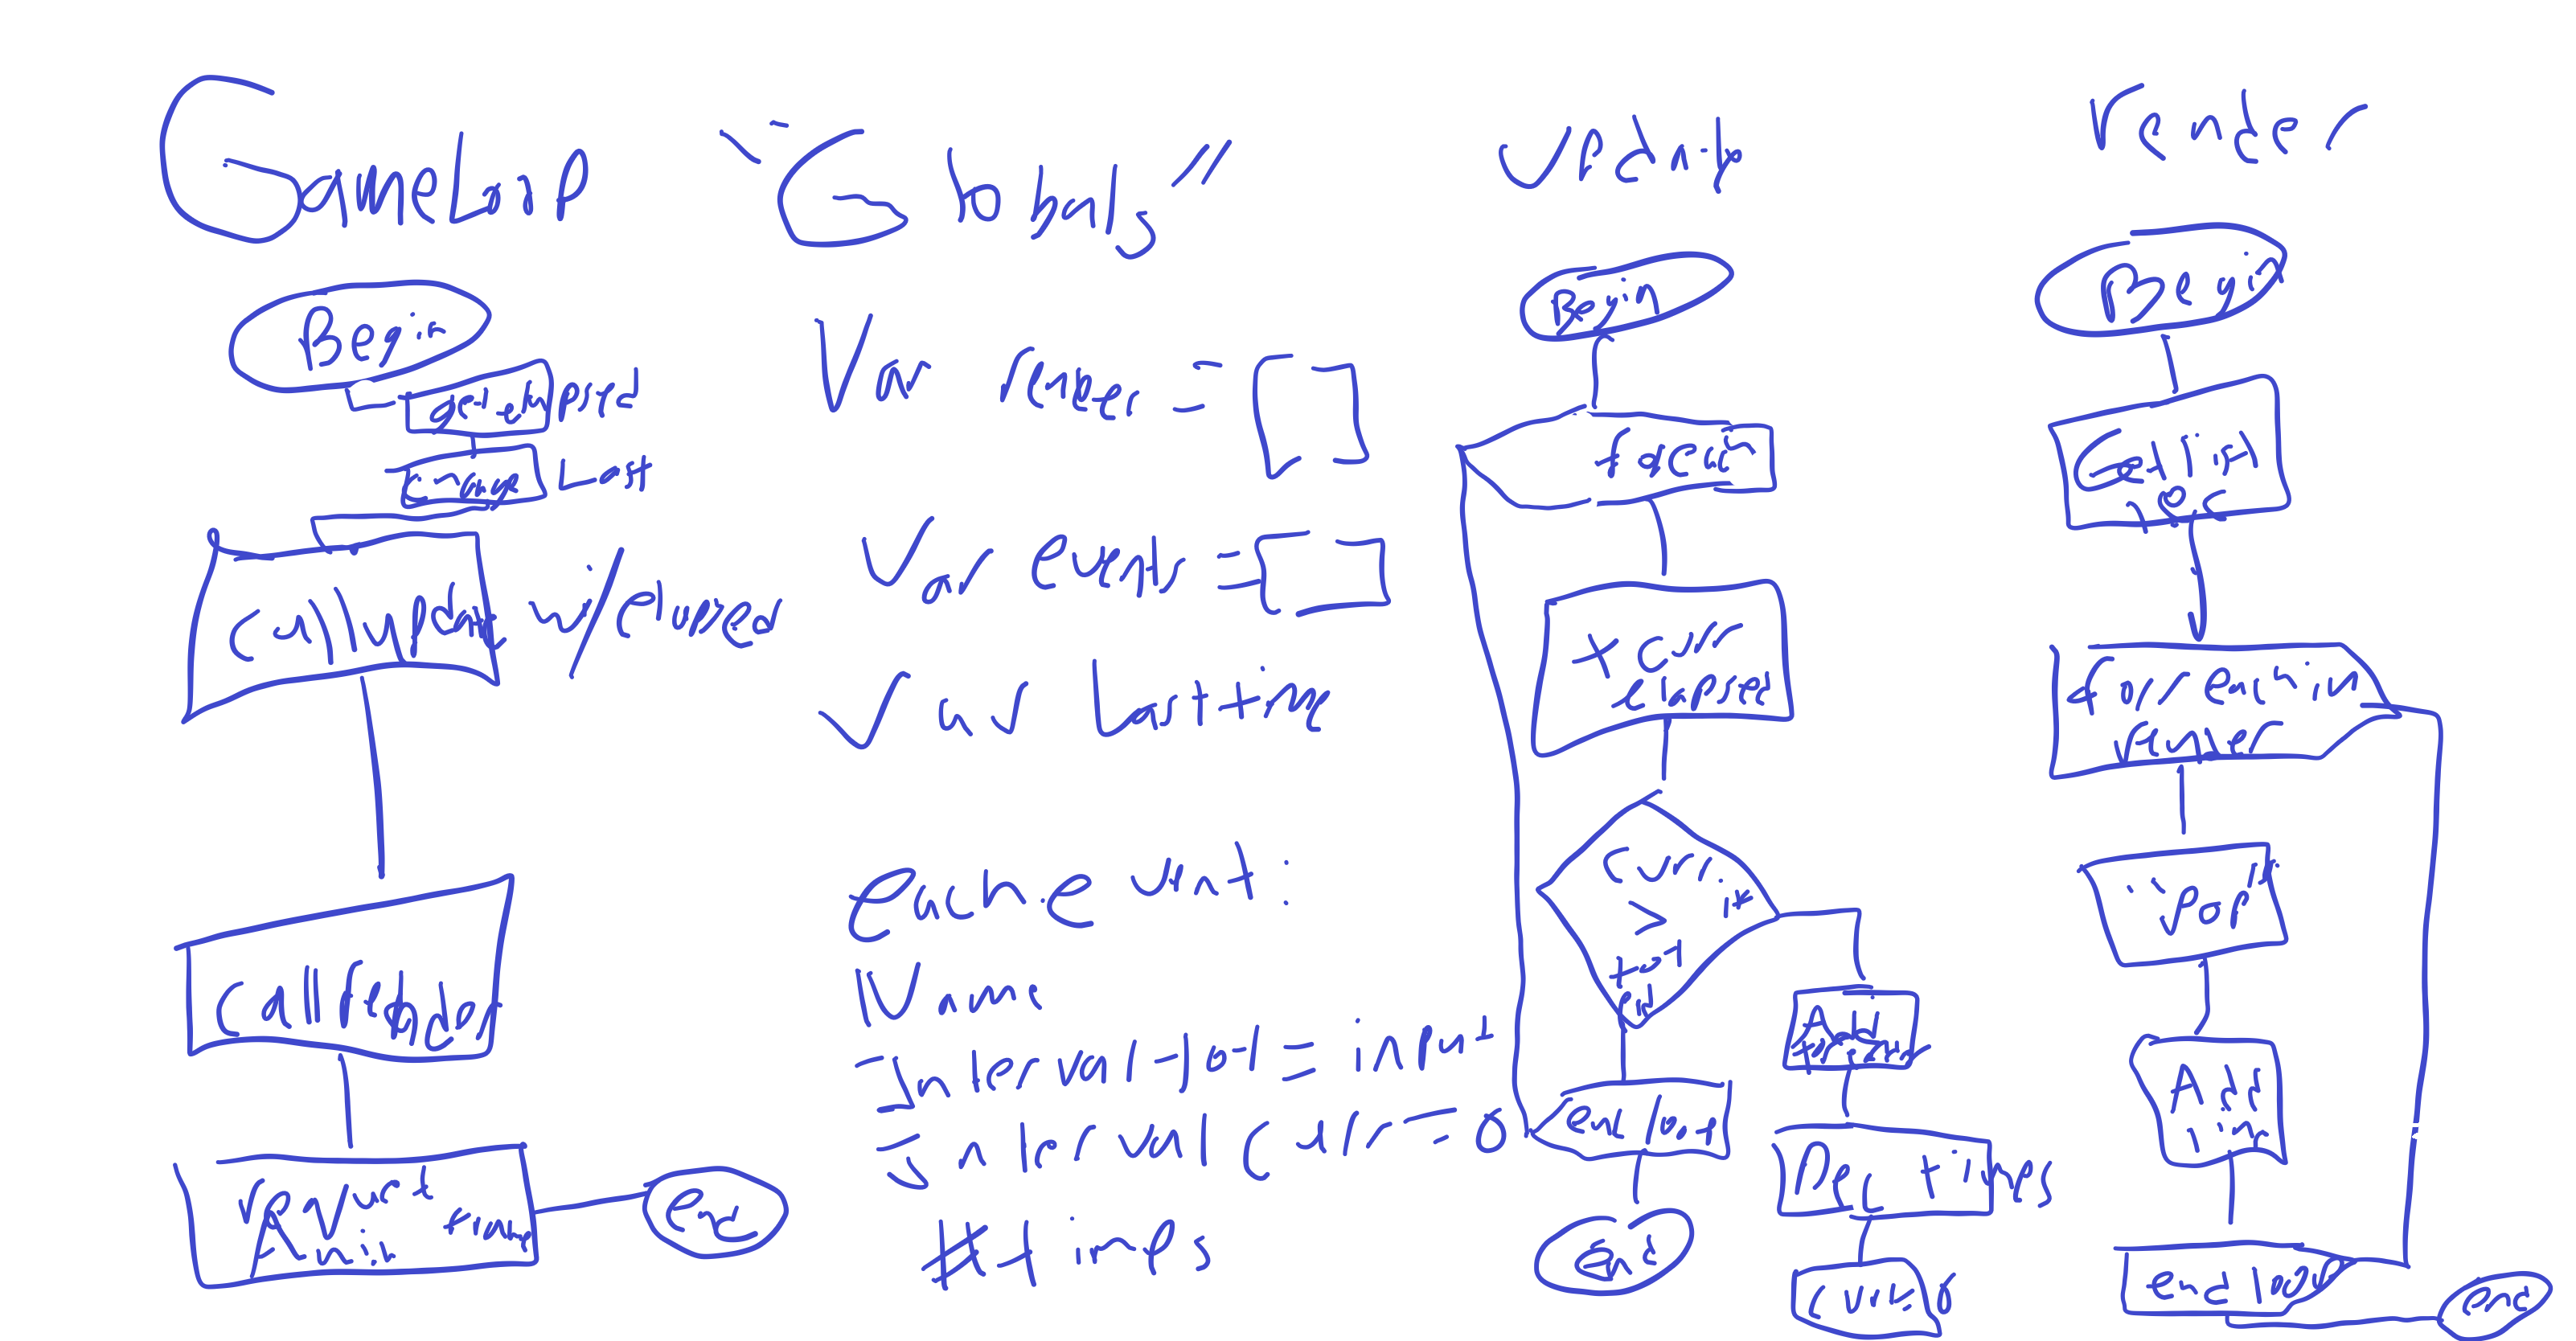 GameLoop
Begin
get elapsed
Change Last
Call update w/elapsed
Call render
request
Animin frame
end
"Globals"
Var render = []
Var events = []
Var Lasttime
each event:
Name
Interval tot = input
Interval Curr = 0
# times
Update
Begin
foreach
+ curr
elapsed
Curr it
>
tot
end loop
End
Add
Dec times
Curr = 0
render
Begin
Get list
loc
for each in
render
"Pop"
Add
line
end loop
end